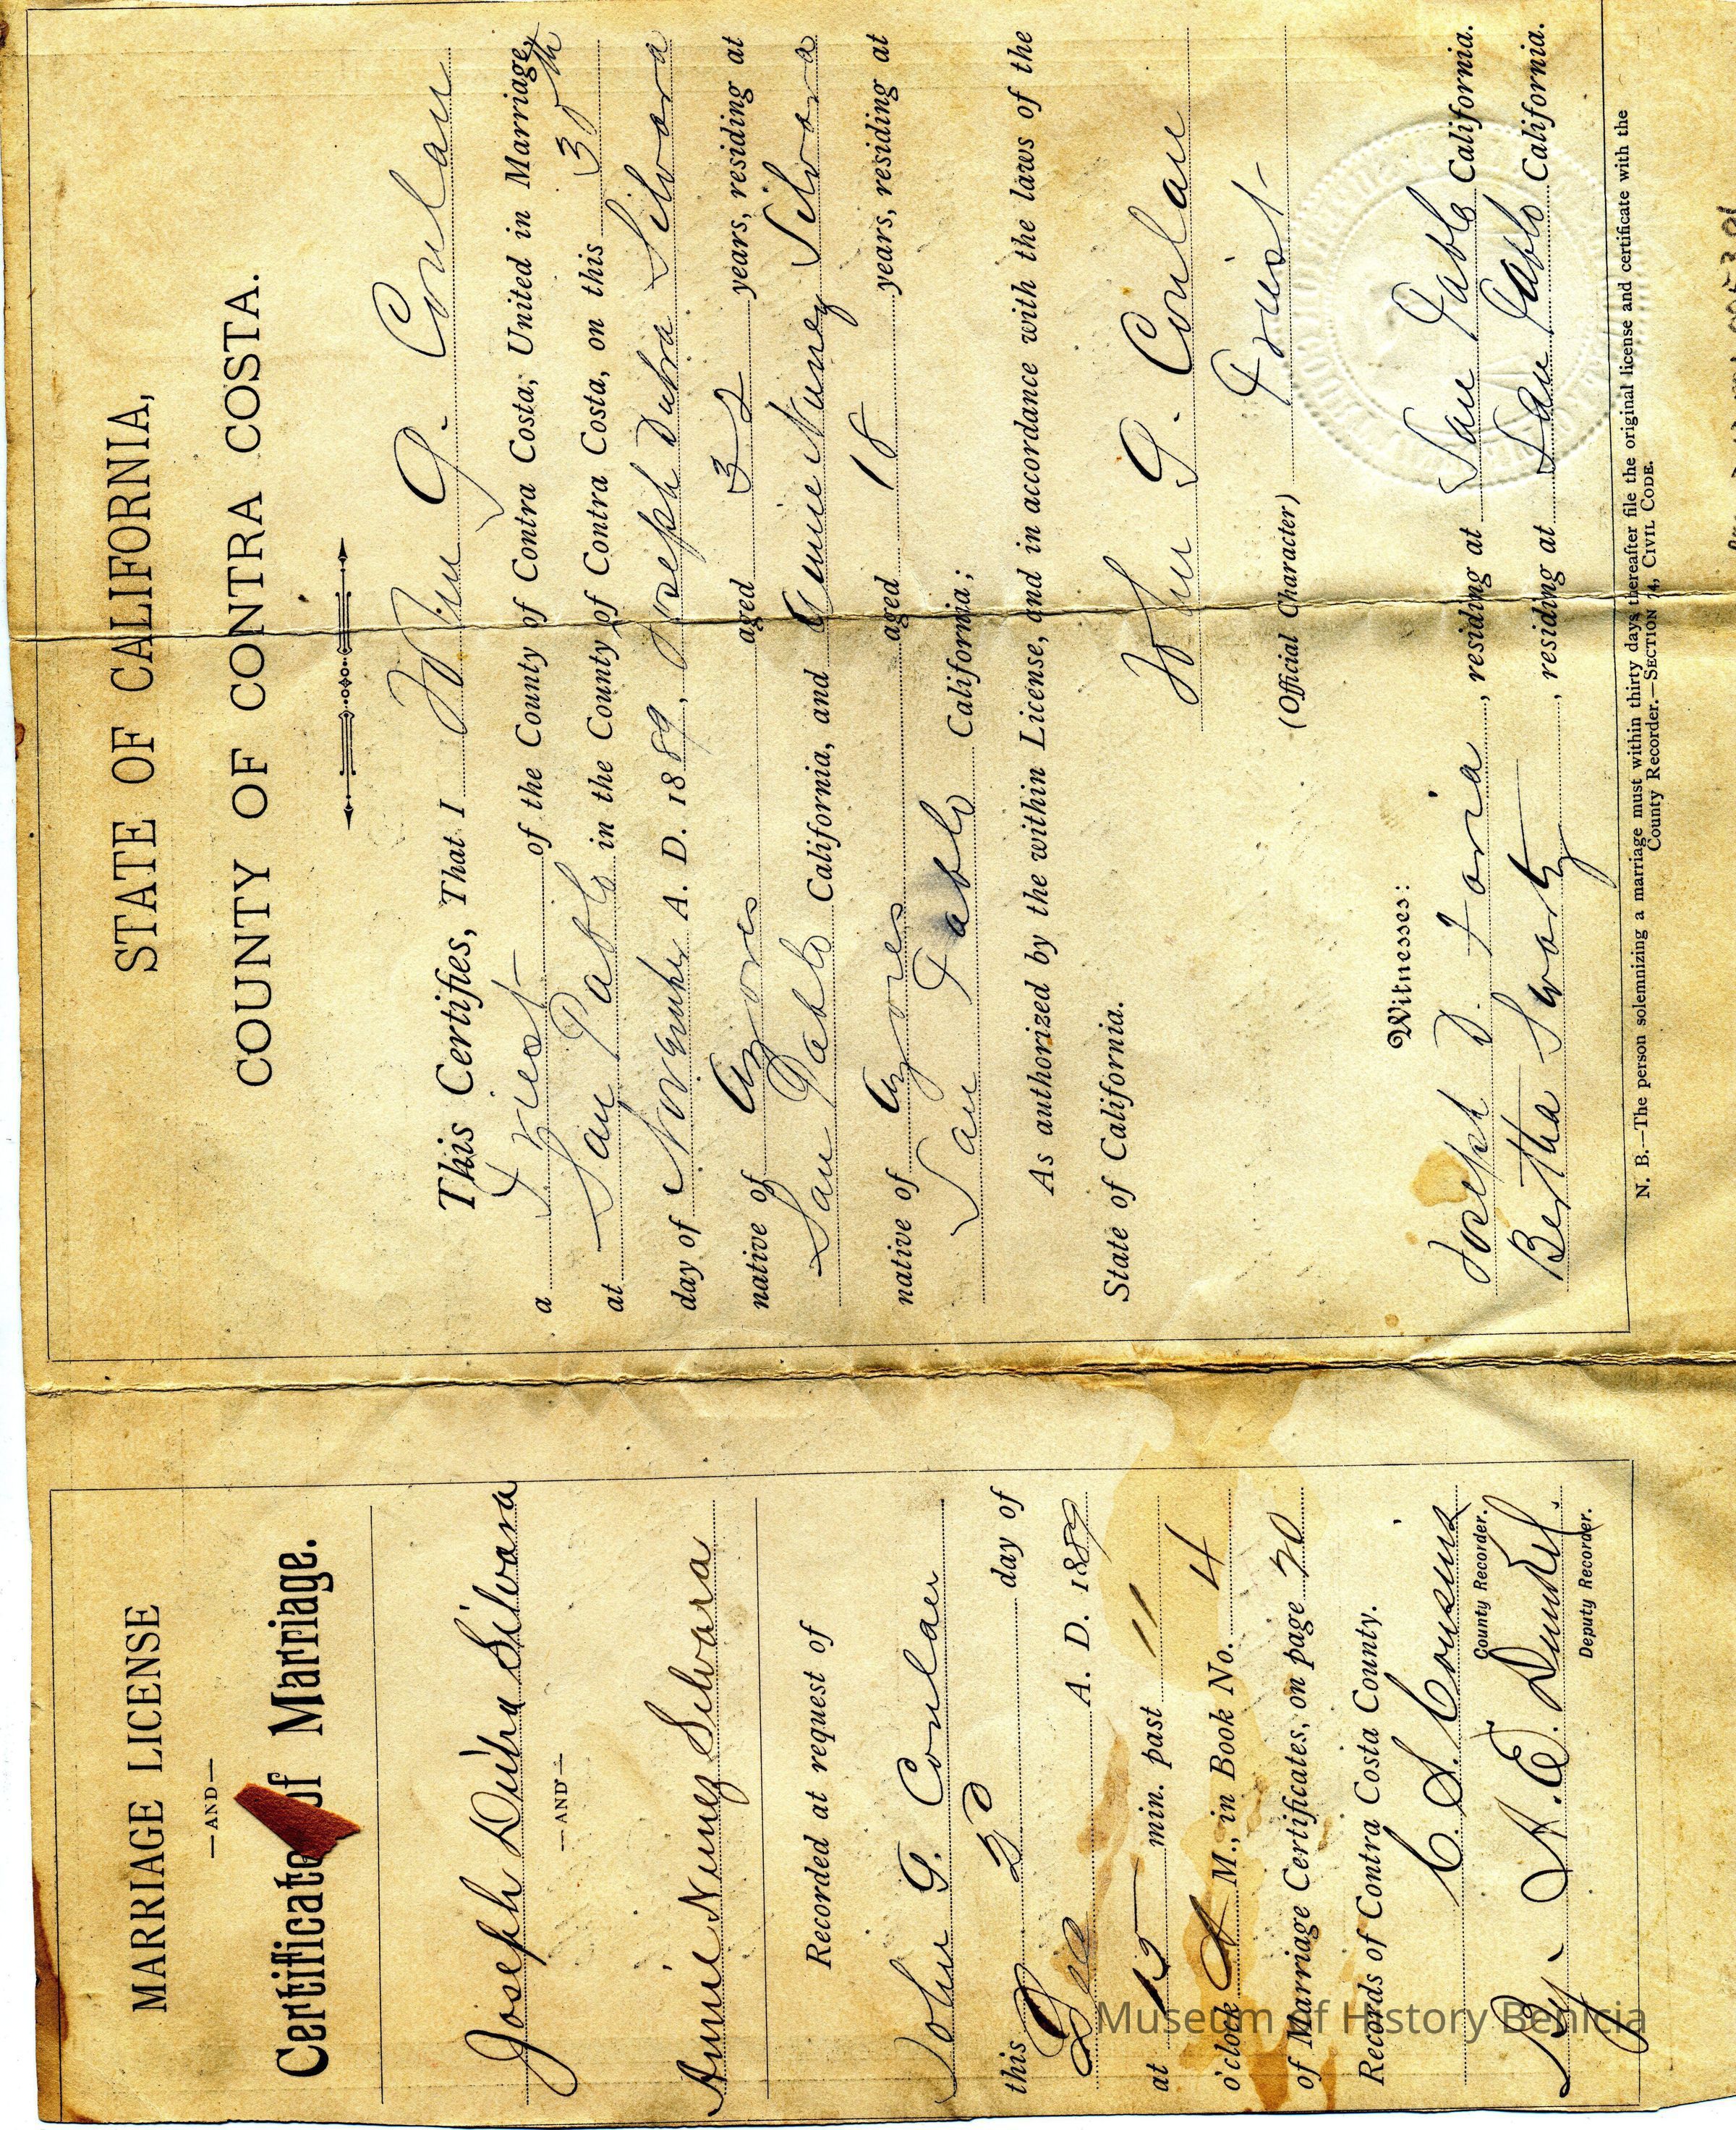 STATE OF CALIFORNIA,
COUNTY OF CONTRA COSTA.
This Certifies, That I John G. Conlan
a Priest of the County of Contra Costa, United in Marriage,
at San Pablo in the County of Contra Costa, on this 30th
day of November A. D. 1889, Joseph Dutra Silvara
native of Azores aged 32 years, residing at
San Pablo California, and Annie Nunez Silvara
native of Azores aged 18 years, residing at
San Pablo California;
As authorized by the within License, and in accordance with the laws of the
State of California.
John G. Conlan
Priest
(Official Character)
Witnesses:
Joseph D. Foria, residing at San Pablo California.
Bertha Swarty, residing at San Pablo California.
N. B.—The person solemnizing a marriage must within thirty days thereafter file the original license and certificate with the
County Recorder.—SECTION 74, CIVIL CODE.
MARRIAGE LICENSE
—AND—
Certificate of Marriage.
Joseph Dutra Silvara
—AND—
Annie Nunez Silvara
Recorded at request of
John G. Conlan
this day of
Dec A. D. 1889
at 15 min. past 11
o'clock A M., in Book No. 4
of Marriage Certificates, on page 70
Records of Contra Costa County.
C. S. Cousins
County Recorder.
By A. E. Dunkel.
Deputy Recorder.
Museum of History Benicia